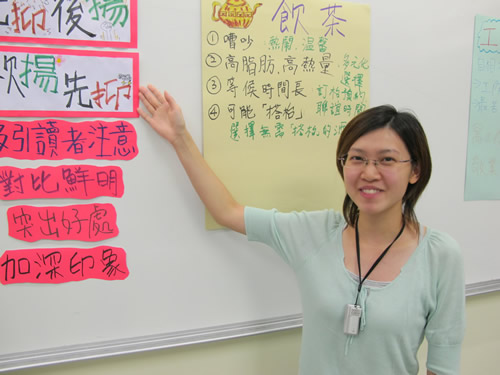 先抑後揚
欲揚先抑
吸引讀者注意
對比鮮明
突出好處
加深印象
飲茶
① 嘈吵:熱鬧、溫馨
② 高脂肪、高熱量:多元化
選擇
③ 等候時間長:訂枱
④ 可能「搭枱」聯誼時間
選擇無需「搭枱」的酒